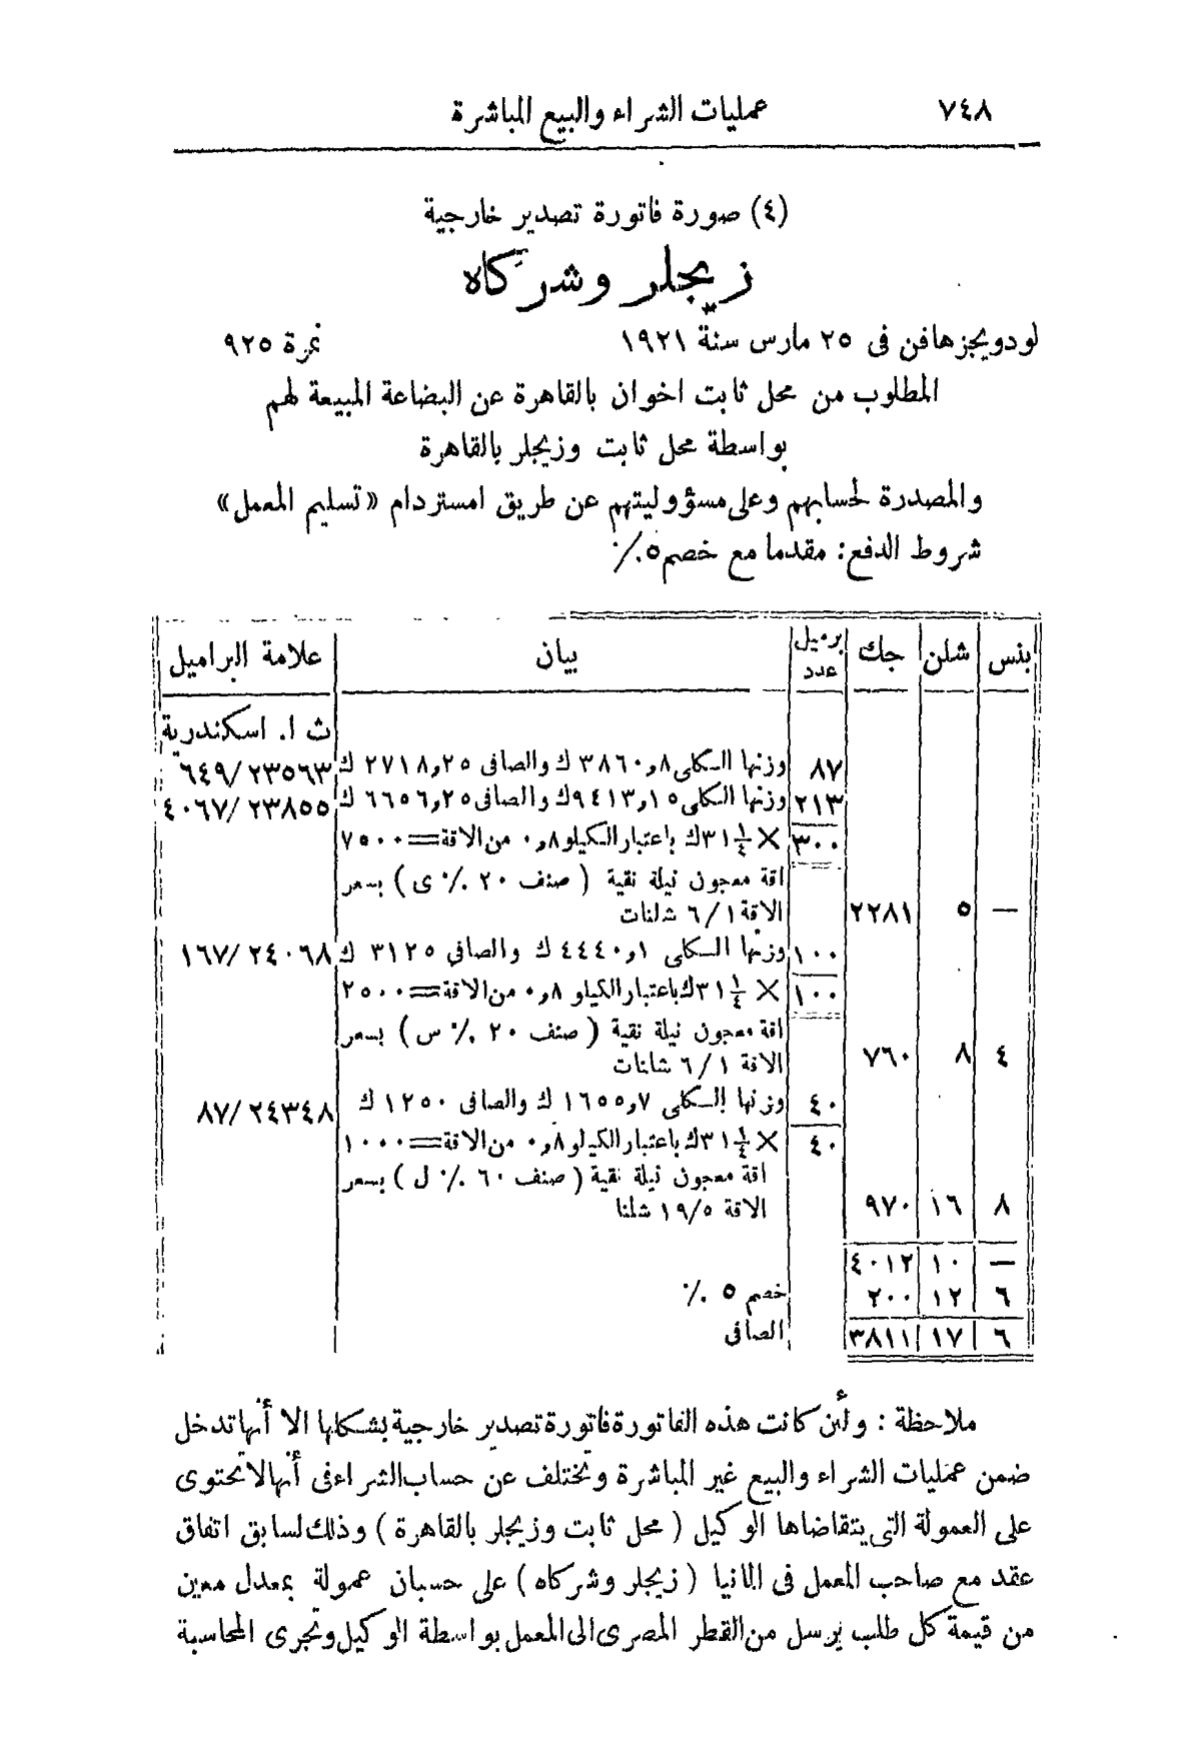 ٧٤٨ عمليات الشراء والبيع المباشرة
(٤) صورة فاتورة تصدير خارجية
زيجلر وشركاه
لودويجزهافن فى ٢٥ مارس سنة ١٩٢١ نمرة ٩٢٥
المطلوب من محل ثابت اخوان بالقاهرة عن البضاعة المبيعة لهم
بواسطة محل ثابت وزيجلر بالقاهرة
والمصدرة لحسابهم وعلى مسؤوليتهم عن طريق امستردام «تسليم المعمل»
شروط الدفع: مقدما مع خصم ٥٪
بنس شلن جك برميل عدد بيان علامة البراميل
ث ا. اسكندرية
٨٧ وزنها الكلى ٣٨٦٠,٨ ك والصافى ٢٧١٨,٢٥ ك ٦٤٩/٢٣٥٦٣
٢١٣ وزنها الكلى ٩٤١٣,١٥ك والصافى ٦٦٥٦,٢٥ ك ٤٠٦٧/٢٣٨٥٥
٣٠٠ × ٣١¼ك باعتبار الكيلو ٠,٨ من الاقة = ٧٥٠٠
اقة معجون نيلة نقية ( صنف ٢٠ ٪ ى ) بسعر
— ٥ ٢٢٨١ الاقة ٦/١ شلنات
١٠٠ وزنها الكلى ٤٤٤٠,١ ك والصافى ٣١٢٥ ك ١٦٧/٢٤٠٦٨
١٠٠ × ٣١¼ك باعتبار الكيلو ٠,٨ من الاقة = ٢٥٠٠
اقة معجون نيلة نقية ( صنف ٢٠ ٪ س ) بسعر
٤ ٨ ٧٦٠ الاقة ٦/١ شلنات
٤٠ وزنها الكلى ١٦٥٥,٧ ك والصافى ١٢٥٠ ك ٨٧/٢٤٣٤٨
٤٠ × ٣١¼ك باعتبار الكيلو ٠,٨ من الاقة = ١٠٠٠
اقة معجون نيلة نقية ( صنف ٦٠ ٪ ل ) بسعر
٨ ١٦ ٩٧٠ الاقة ١٩/٥ شلنا
— ١٠ ٤٠١٢
٦ ١٢ ٢٠٠ خصم ٥ ٪
٦ ١٧ ٣٨١١ الصافى
ملاحظة : ولئن كانت هذه الفاتورة فاتورة تصدير خارجية بشكلها الا أنها تدخل
ضمن عمليات الشراء والبيع غير المباشرة وتختلف عن حساب الشراء فى أنها لا تحتوى
على العمولة التى يتقاضاها الوكيل ( محل ثابت وزيجلر بالقاهرة ) وذلك لسابق اتفاق
عقد مع صاحب المعمل فى المانيا ( زيجلر وشركاه ) على حسبان عمولة بمعدل معين
من قيمة كل طلب يرسل من القطر المصرى الى المعمل بواسطة الوكيل وتجرى المحاسبة